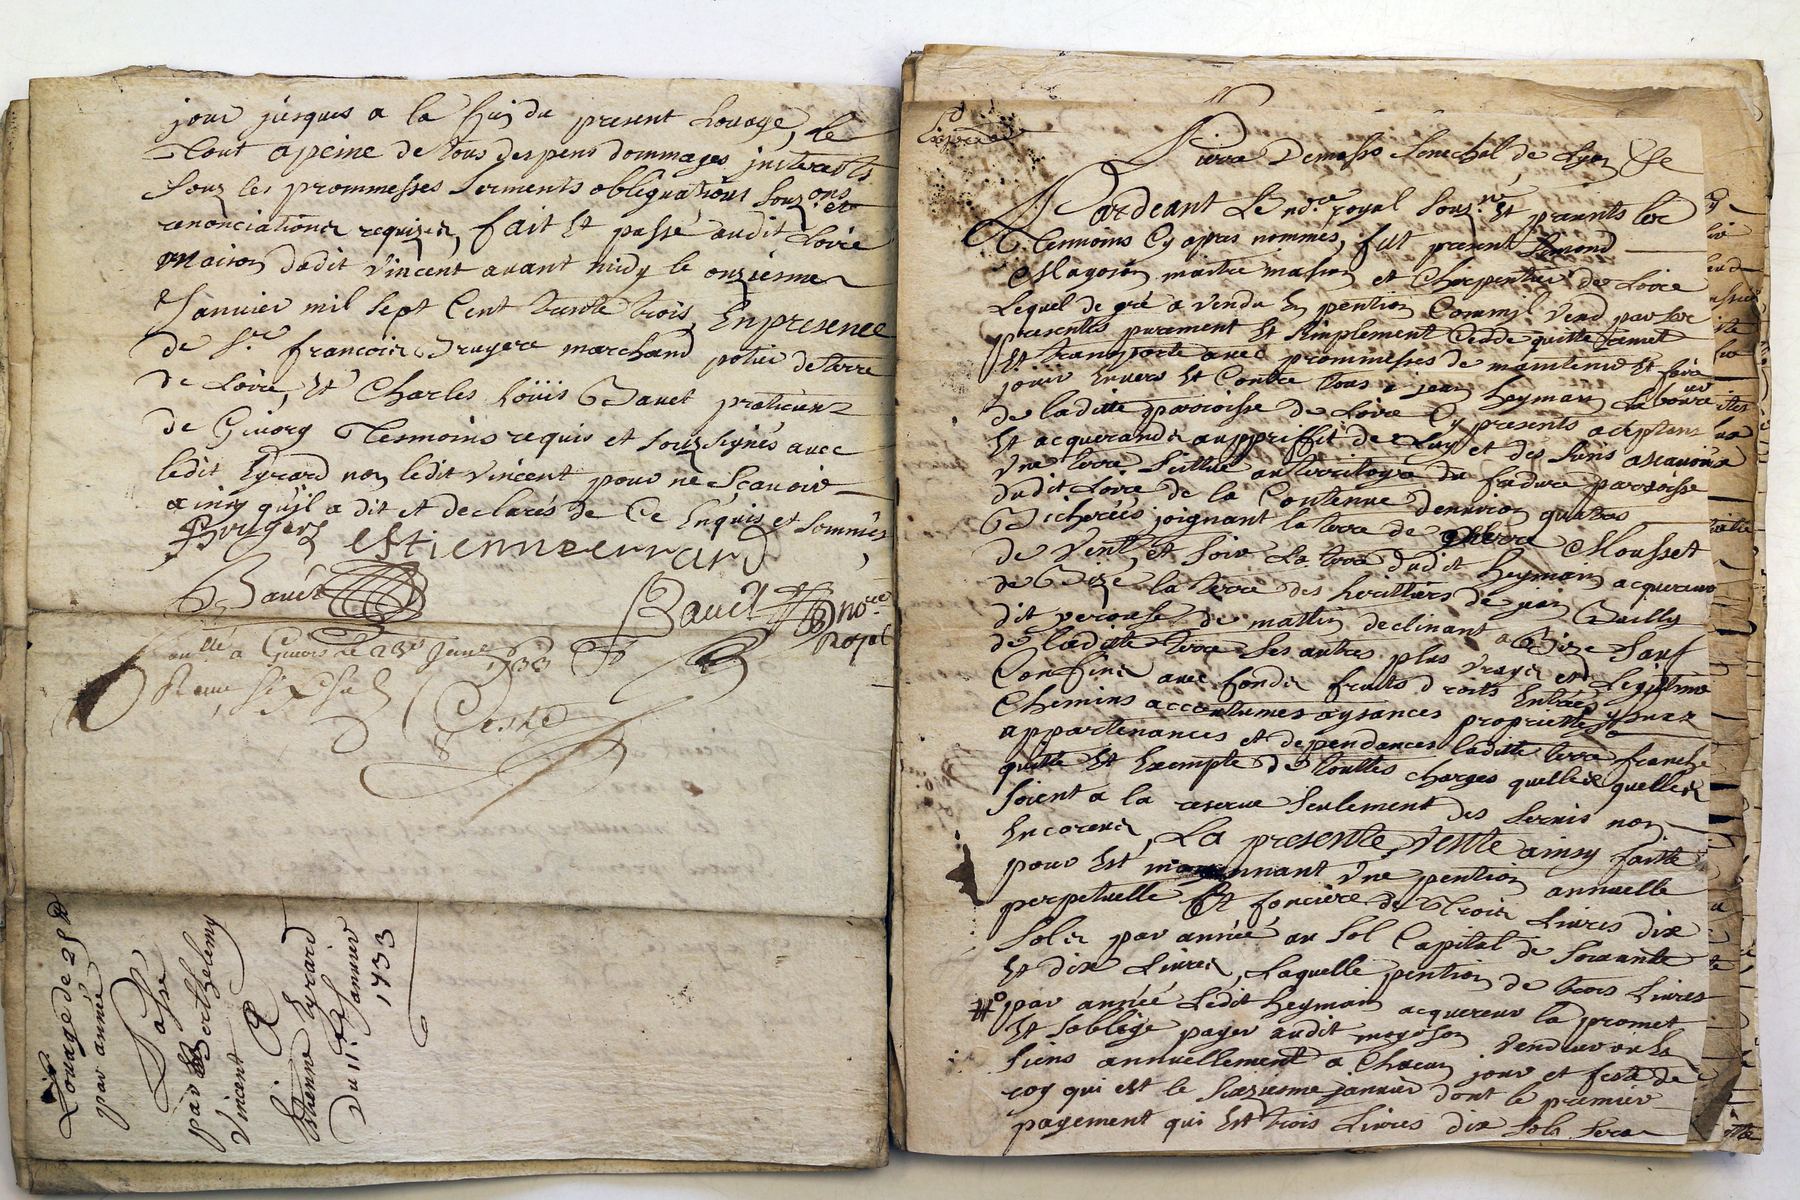 jour jusques a la fin du present Louage, le
Tout apeine de tous despens dommages interaists
souz les prommesses serments obliguations souz.ons et
renonciationes requizes, fait Et passé audit Loire
maison dudit vincent avant midy le onziesme
Janvier mil sept Cent trante trois, En presence
de Sr. francois Bruyere marchand potier de terre
de Loire, Et Charles Loüis Bauet praticien
de Givors Tesmoins requis et souzsignés avec
ledit Eyrard non ledit vincent pour ne Scavoir
ainsy qu'il a dit et declarés de Ce Enquis et Sommés
Bruyere estienne errard
Bauet
Bauet nore Royal
Conllé a Givors le 23e Janr 1733
Reçu six sols
Coste
Louage de 25 #
par année
Passé
par Berthelemy
Vincent
A
Estienne Eyrard
Du 11e Janvier
1733
Expediée
Pierre Demasso Senechal de Lyon &c
Pardeant Le nore royal souz.né Et presents les
temmoins Cy apres nommés, fut present Simond
Magoson maitre masson et Charpentier de Loire
Lequel de gré a vendu En pention Comm'il vend par les
presentes purement Et simplement Cedde quitte remet
Et transporte avec prommesses de maintenir Et faire
jouir Envers Et Contre tous a jean heymain Laboureur
de ladite parroisse de Loire Cy presents aceptant
Et acquerande auppriffit de Luy et des siens ascavoir
Une terre Scittue au territoyre du fadure parroisse
dudit Loire de la Contenue denviron quatres
Bicherées joignant la terre de pierre Mousset
de Vent, et soir La terre dudit heymain acquereur
de Bize la terre des heritiers de jean Bailly
dit verouse de mattin declinant a Bize Sauf
de ladite terre ses autres plus vrayes et Legitime
Confines avec fondes fruits droits Entrées ysuez
Chemins accoutumes aysances proprietées
appartenances et dependances laditte terre franche
quitte Et Exempte de touttes charges quelles quelles
soient a la reserve seulement des servis non
Encorens, La presente vente ainsy faitte
pour Et moyennant Une pention annuelle
perpetuelle Et fonciere de Trois Livres dix
Soles par année au sol Capital de Soixante
Et dix Livres, Laquelle pention de trois Livres
# par année Ledit heymain acquereur la promet
Et s'oblige payer audit magoson vendeur ou Es
siens annuellement a Chacun jour et feste de
roy qui est le sixziesme janvier dont le premier
payement qui Est trois Livres dix sols sera